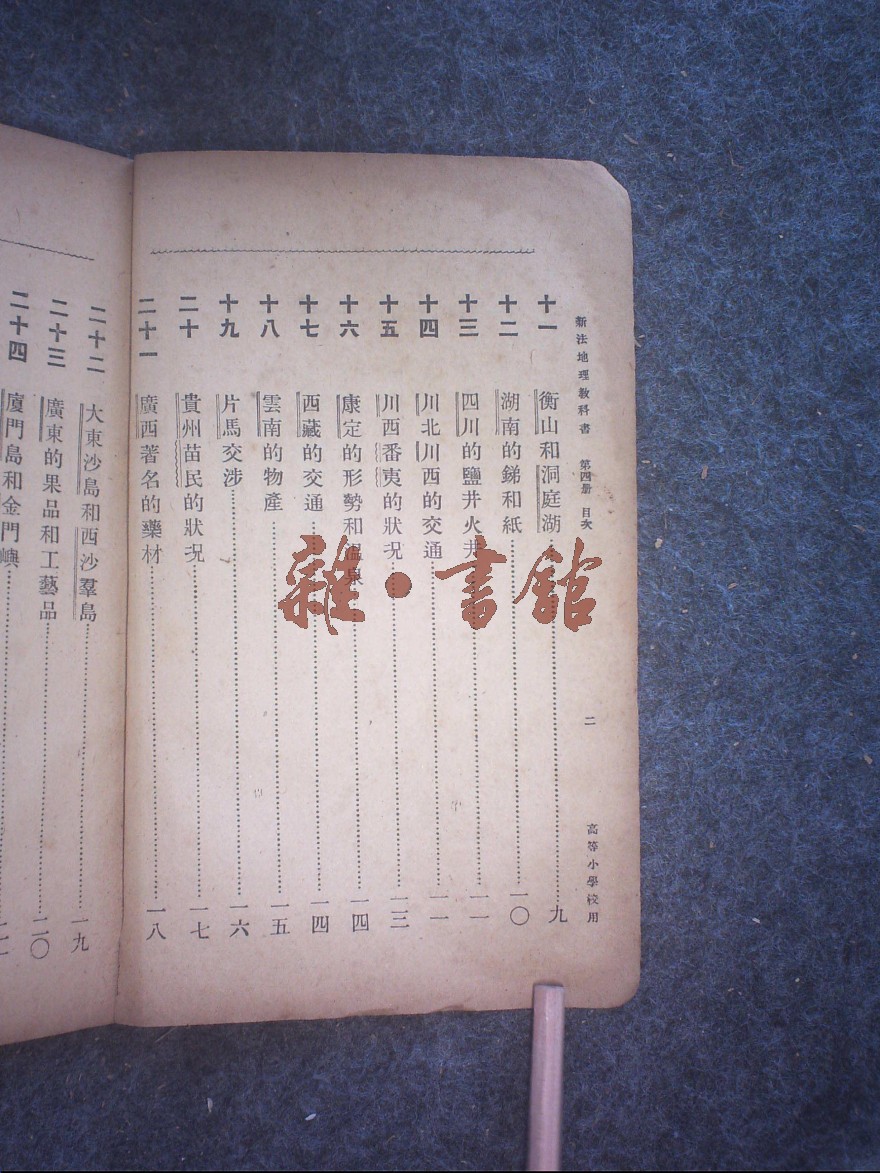 新法地理教科書 第四册 目次 二 高等小學校用
十一 衡山和洞庭湖 九
十二 湖南的銻和紙 一〇
十三 四川的鹽井火井 一一
十四 川北川西的交通 一一
十五 川西番夷的狀況 一三
十六 康定的形勢和溫泉 一四
十七 西藏的交通 一四
十八 雲南的物產 一五
十九 片馬交涉 一六
二十 貴州苗民的狀況 一七
二十一 廣西著名的藥材 一八
二十二 大東沙島和西沙羣島 一九
二十三 廣東的果品和工藝品 二〇
二十四 廈門島和金門嶼
雜·書館